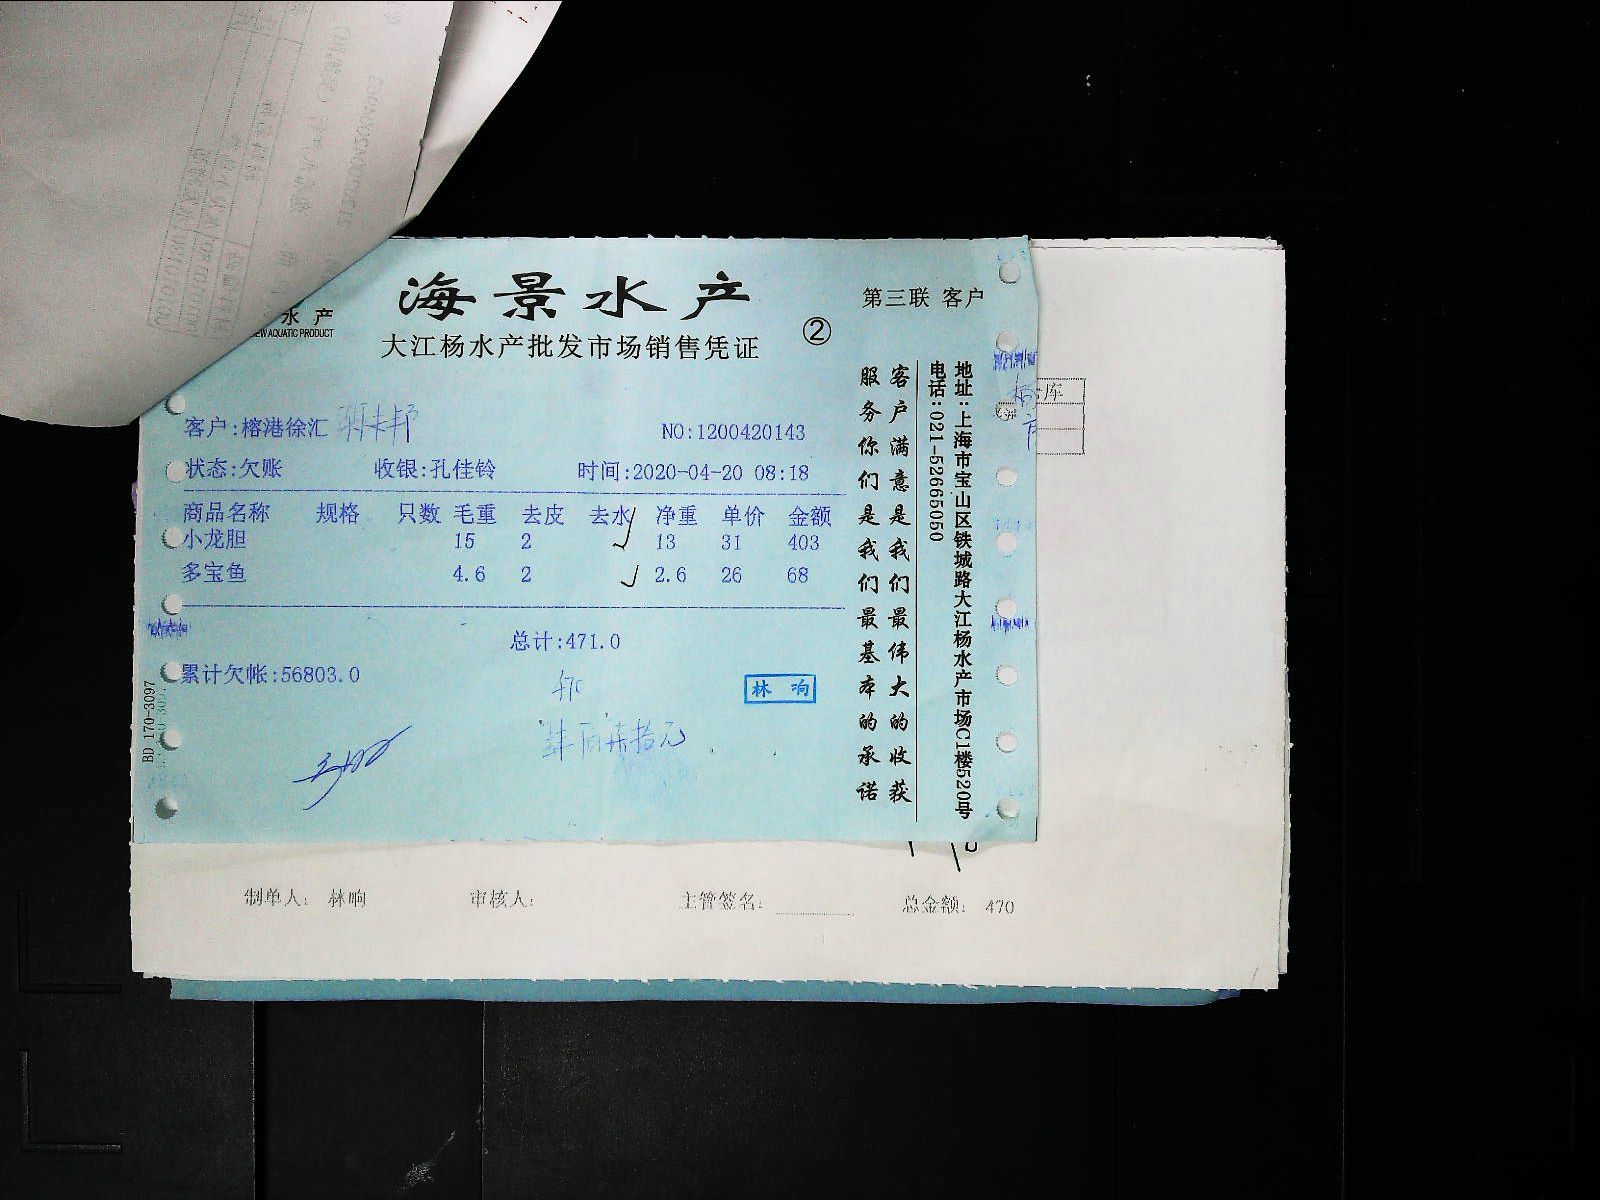 海景水产
水产
NEW AQUATIC PRODUCT
大江杨水产批发市场销售凭证
②
第三联 客户
客户:榕港徐汇
NO:1200420143
状态:欠账 收银:孔佳铃 时间:2020-04-20 08:18
商品名称 规格 只数 毛重 去皮 去水 净重 单价 金额
小龙胆 15 2 13 31 403
多宝鱼 4.6 2 2.6 26 68
总计:471.0
累计欠帐:56803.0
470
肆佰柒拾元
林响
客户满意是我们最伟大的收获
服务你们是我们最基本的承诺
地址:上海市宝山区铁城路大江杨水产市场C1楼520号
电话:021-52665050
BD 170-3097
库
制单人: 林响 审核人: 主管签名: 总金额: 470